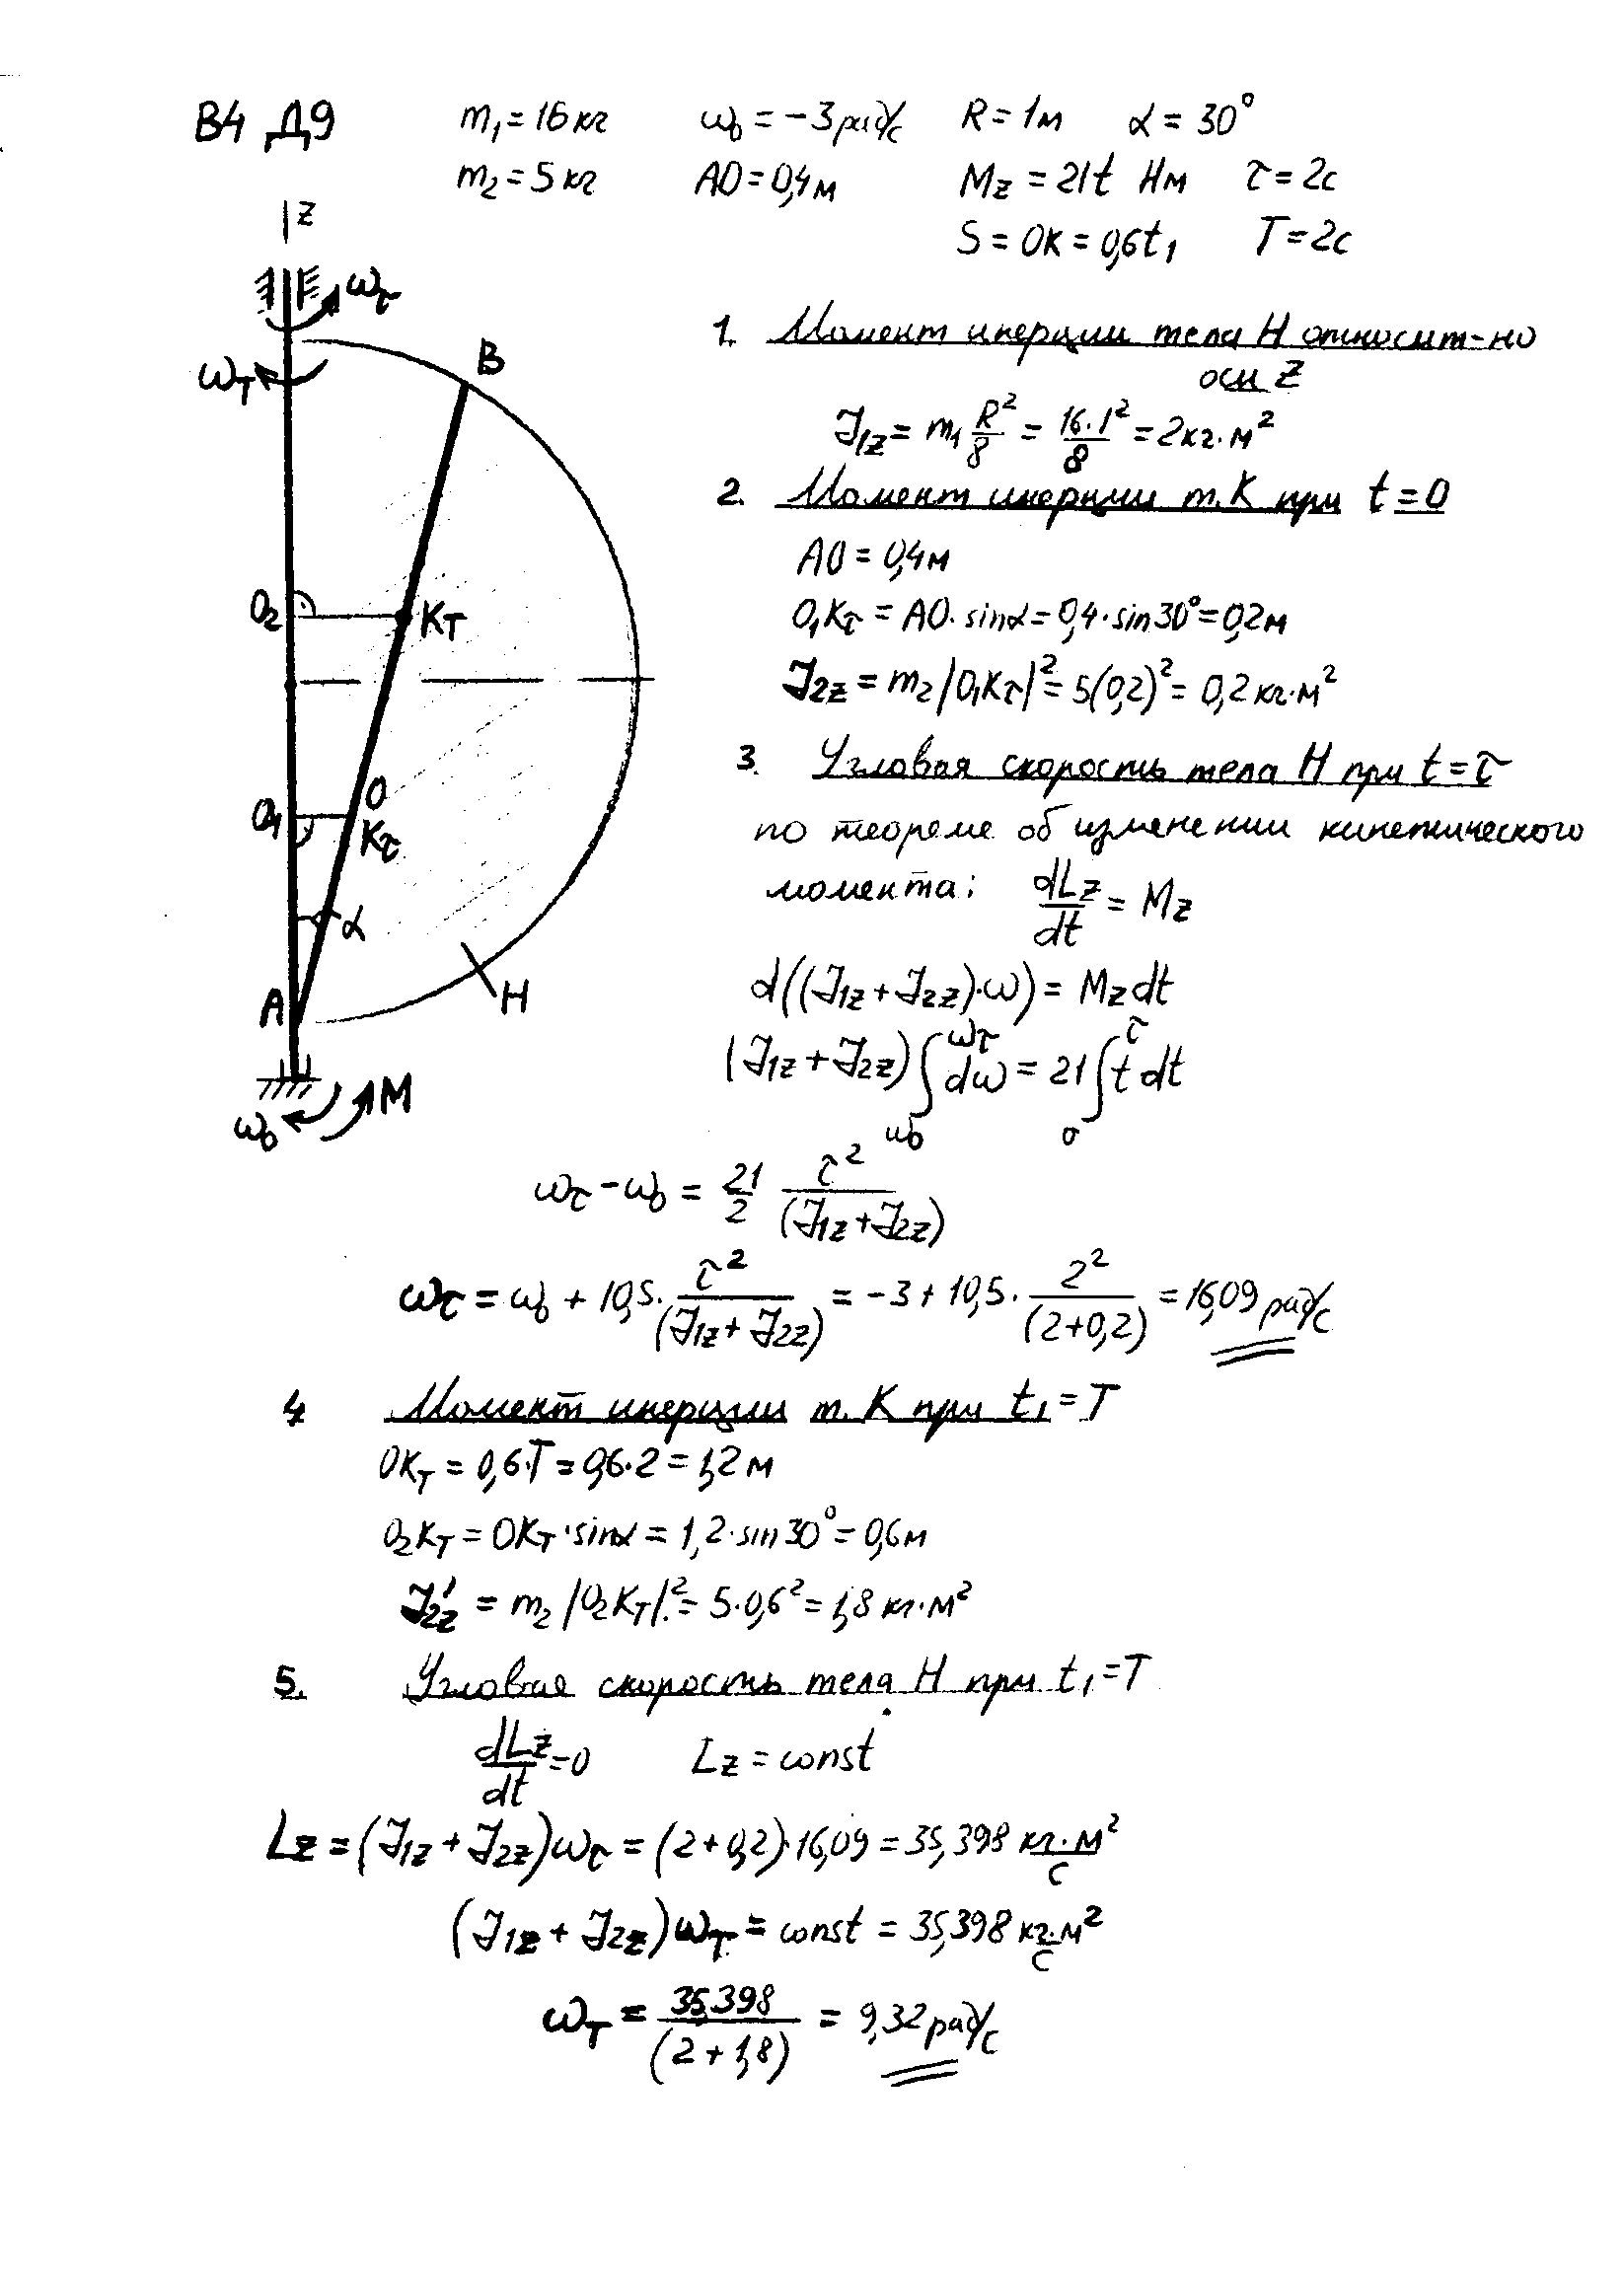 В4 Д9 m₁ = 16 кг ω₀ = -3 рад/с R = 1 м α = 30°
m₂ = 5 кг AO = 0,4 м Mz = 21t Нм τ = 2с
S = OK = 0,6t₁ T = 2с
z
ωτ
ωT
B
O₂
KT
O
O₁
Kτ
α
A
H
M
ω₀
1. Момент инерции тела Н относит-но
оси Z
J₁z = m₁ R²/8 = 16·1²/8 = 2 кг·м²
2. Момент инерции т. К при t = 0
AO = 0,4 м
O₁Kτ = AO·sinα = 0,4·sin30° = 0,2 м
J₂z = m₂|O₁Kτ|² = 5(0,2)² = 0,2 кг·м²
3. Угловая скорость тела Н при t = τ
по теореме об изменении кинетического
момента: dLz/dt = Mz
d((J₁z + J₂z)·ω) = Mz dt
(J₁z + J₂z) ∫_{ω₀}^{ωτ} dω = 21 ∫_0^τ t dt
ωτ - ω₀ = 21/2 τ²/(J₁z + J₂z)
ωτ = ω₀ + 10,5· τ²/(J₁z + J₂z) = -3 + 10,5· 2²/(2+0,2) = 16,09 рад/с
4 Момент инерции т. К при t₁ = T
OKT = 0,6·T = 0,6·2 = 1,2 м
O₂KT = OKT·sinα = 1,2·sin30° = 0,6 м
J₂z' = m₂|O₂KT|² = 5·0,6² = 1,8 кг·м²
5. Угловая скорость тела Н при t₁ = T
dLz/dt = 0 Lz = const
Lz = (J₁z + J₂z)ωτ = (2+0,2)·16,09 = 35,398 кг·м²/с
(J₁z + J₂z)ωT = const = 35,398 кг·м²/с
ωT = 35,398/(2+1,8) = 9,32 рад/с